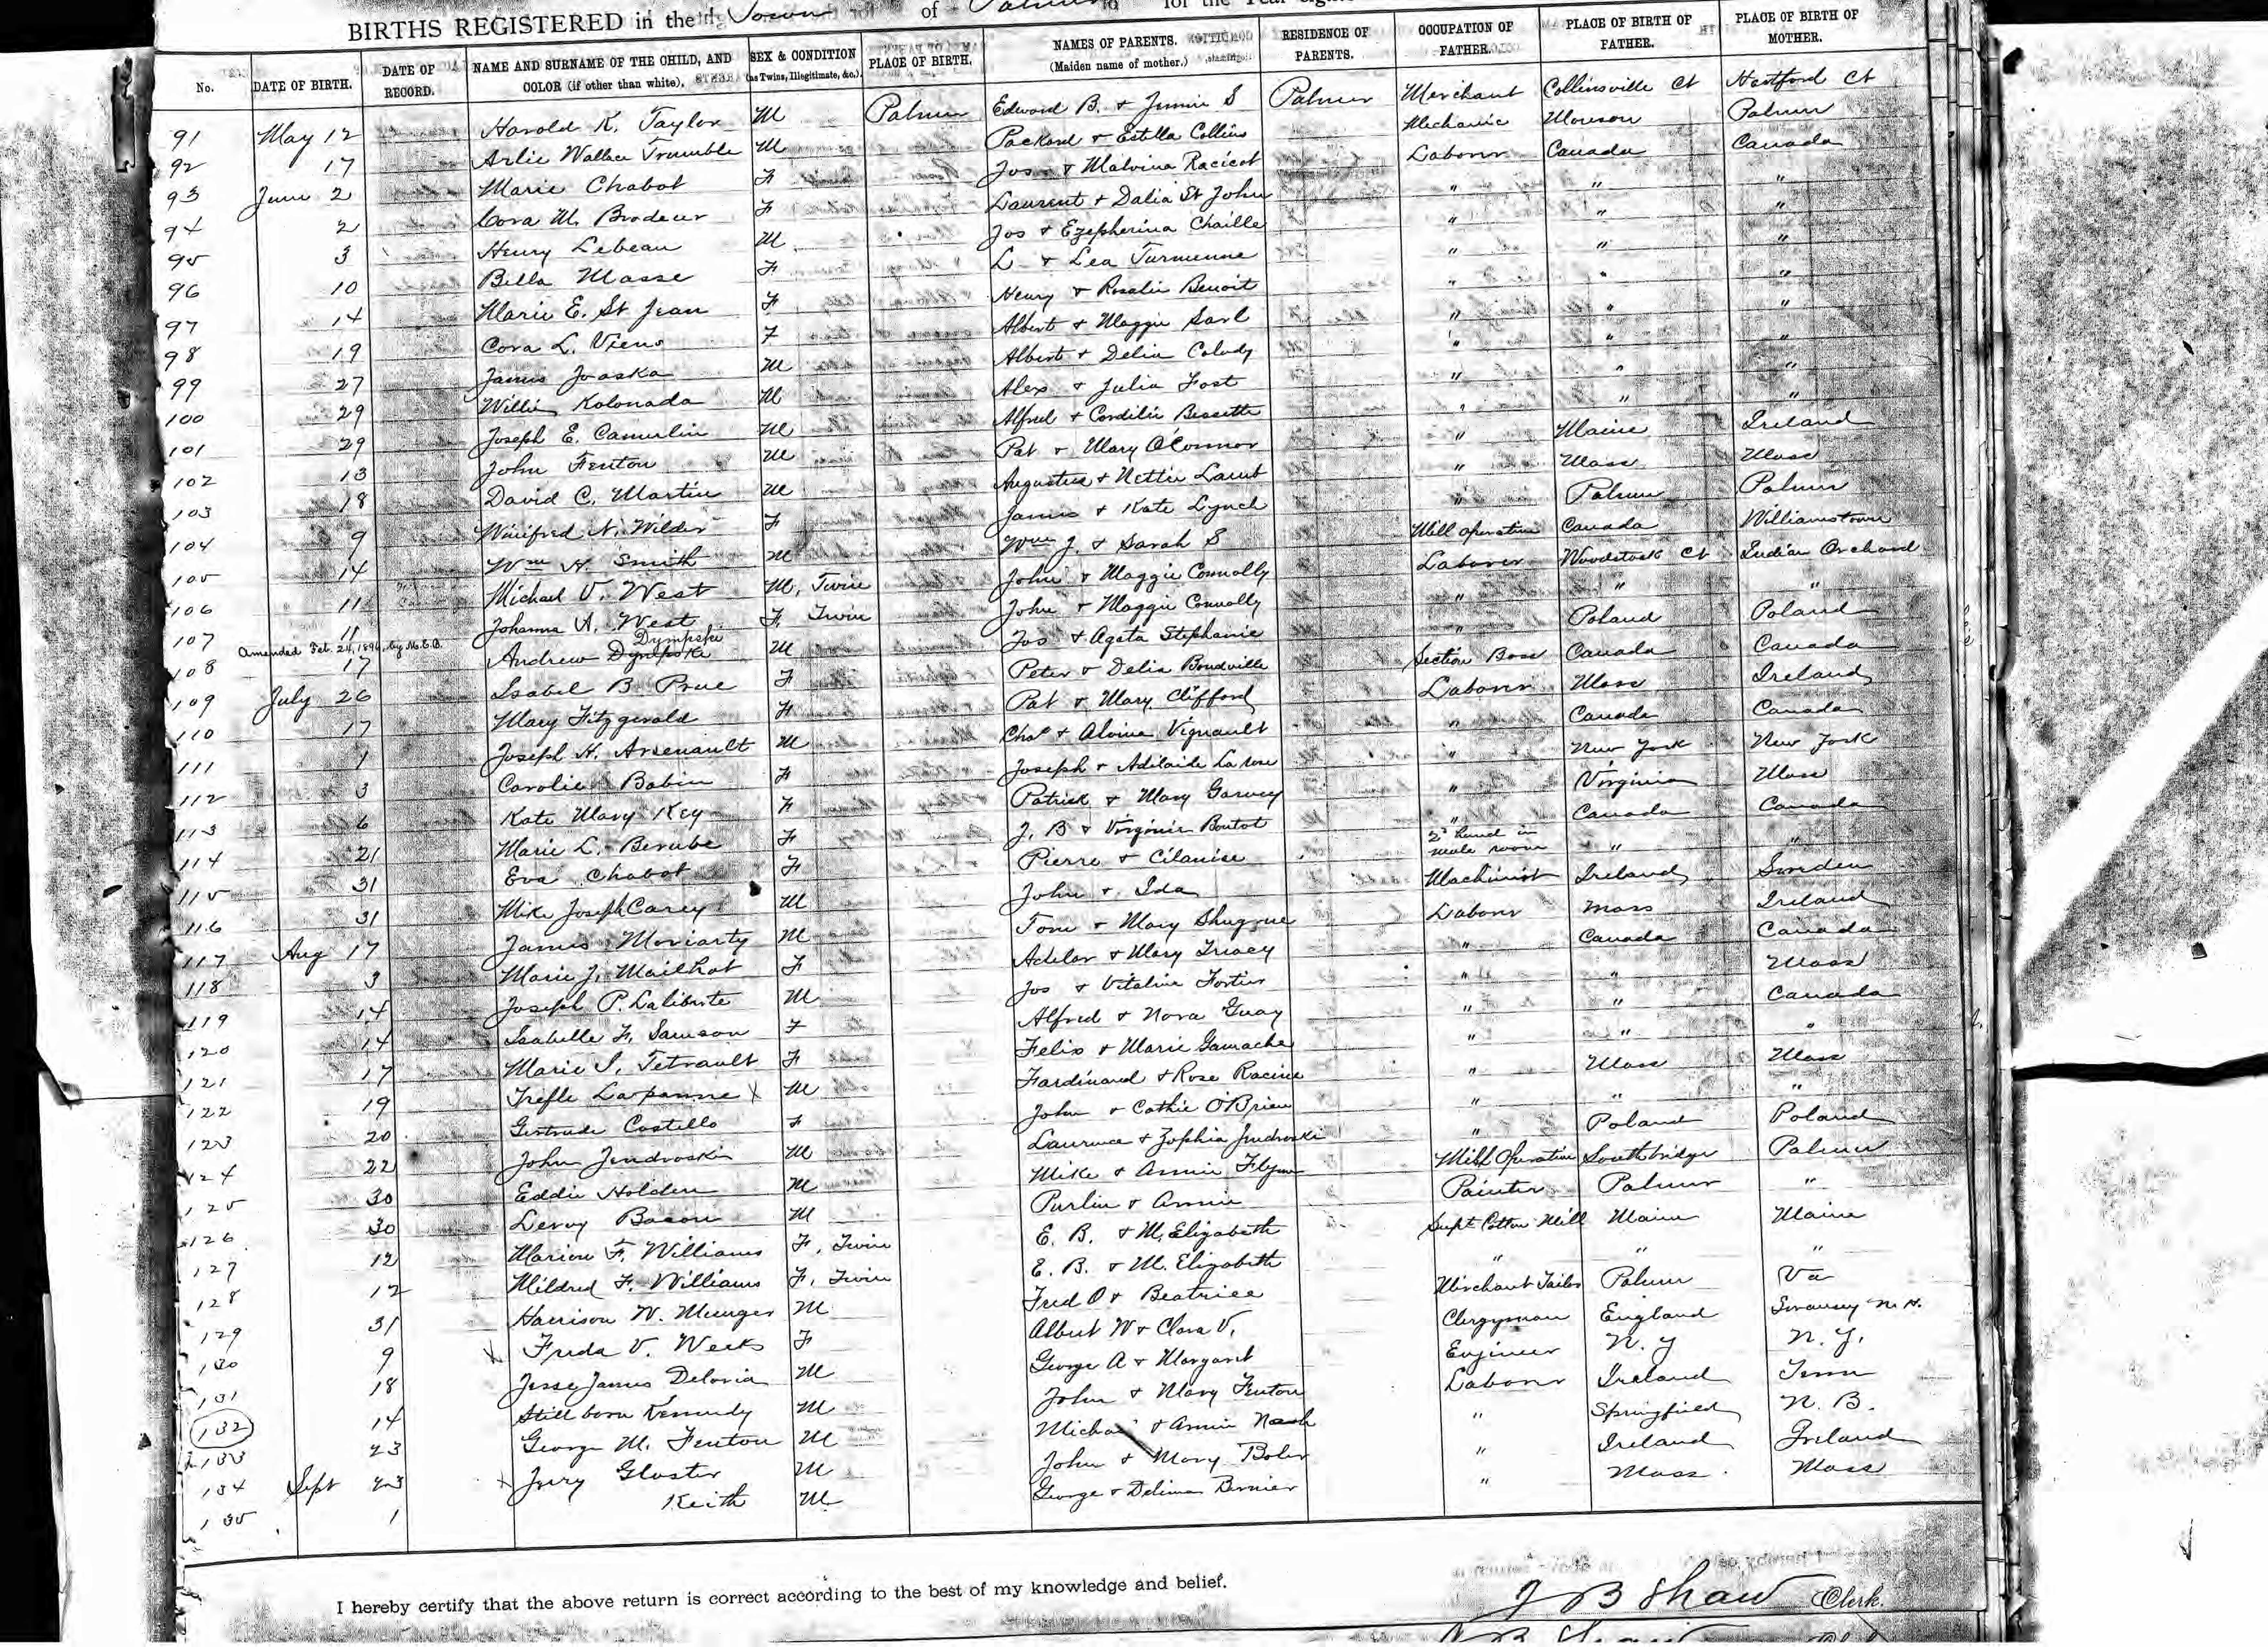 BIRTHS REGISTERED in the Town of Palmer for the Year
No. DATE OF BIRTH. DATE OF RECORD. NAME AND SURNAME OF THE CHILD, AND COLOR (if other than white). SEX & CONDITION (as Twins, Illegitimate, &c.) PLACE OF BIRTH. NAMES OF PARENTS. (Maiden name of mother.) RESIDENCE OF PARENTS. OCCUPATION OF FATHER. PLACE OF BIRTH OF FATHER. PLACE OF BIRTH OF MOTHER.
91 May 12 Harold K. Taylor M Palmer Edward B. & Jennie S Palmer Merchant Collinsville Ct Hartford Ct
92 17 Arlie Wallace Trumble M Packard & Estella Collins Mechanic Monson Palmer
93 June 2 Marie Chabot F Jos & Malvina Racicot Laborer Canada Canada
94 2 Cora M. Brodeur F Laurent & Dalia St John " " "
95 3 Henry Lebeau M Jos & Ezepherina Chaille " " "
96 10 Bella Masse F L & Lea Turmenne " " "
97 14 Marie E. St Jean F Henry & Rosalie Benoit " " "
98 19 Cora L. Viens F Albert & Maggie Sarl " " "
99 27 James Joaska M Albert & Delia Colady " " "
100 29 Willie Kolonada M Alex & Julia Fost " " "
101 29 Joseph E. Camerlin M Alfred & Cordelie Bessette " " "
102 13 John Fenton M Pat & Mary O'Connor " Maine Ireland
103 18 David C. Martin M Augustus & Nettie Lamb " Mass Mass
104 9 Winifred N. Wilder F James & Kate Lynch " Palmer Palmer
105 14 Wm H. Smith M Wm J. & Sarah S Mill operative Canada Williamstown
106 11 Michael V. West M, Twin John & Maggie Connolly Laborer Woodstock Ct Indian Orchard
107 11 Johanna A. West F, Twin John & Maggie Connolly " " "
Amended Feb. 24, 1896, by M.E.B. Dympski
108 17 Andrew Dympski M Jos & Agata Stephanie " Poland Poland
109 July 26 Isabel B Prue F Peter & Delia Boudville Section Boss Canada Canada
110 17 Mary Fitzgerald F Pat & Mary Clifford Laborer Mass Ireland
111 1 Joseph H. Arsenault M Chas & Aloina Vignault " Canada Canada
112 3 Carolie Babin F Joseph & Adelaide La rose " New York New York
113 6 Kate Mary Key F Patrick & Mary Garvey " Virginia Mass
114 21 Marie L. Berube F J. B & Virginie Boutot " Canada Canada
115 31 Eva Chabot F Pierre & Cilanise 2d hand in mule room " "
116 31 Mike Joseph Carey M John & Ida Machinist Ireland Sweden
117 Aug 17 James Moriarty M Tom & Mary Shugrue Laborer Mass Ireland
118 3 Marie J. Mailhot F Adelar & Mary Tracey " Canada Canada
119 14 Joseph P. Laliberte M Jos & Vitaline Fortier " " Mass
120 14 Isabelle F. Samson F Alfred & Nora Guay " " Canada
121 17 Marie S. Tetrault F Felix & Marie Gamache " " "
122 19 Trefle Lapanne X M Fardinand & Rose Racine " Mass Mass
123 20 Gertrude Costello F John & Cathie O'Brien " " "
124 22 John Jendroski M Laurence & Zophia Jendroski " Poland Poland
125 30 Eddie Holden M Mike & Annie Flynn Mill Operative Southbridge Palmer
126 30 Leroy Bacon M Purlin & Annie Painter Palmer "
127 12 Marion F. Williams F, Twin E. B. & M. Elizabeth Supt Cotton Mill Maine Maine
128 12 Mildred F. Williams F, Twin E. B. & M. Elizabeth " " "
129 31 Harrison W. Munger M Fred O & Beatrice Merchant Tailor Palmer Va
130 9 X Freda V. Weeks F Albert W & Clara V. Clergyman England Swansey N. H.
131 18 Jesse James Deloria M George A & Margaret Engineer N. Y N. Y.
132 14 Still born Kennedy M John & Mary Fenton Laborer Ireland Tenn
133 23 George M. Fenton M Michael & Annie Nash " Springfield N. B.
134 Sept 23 X Jerry Gloster M John & Mary Boler " Ireland Ireland
135 1 Keith M George & Delima Bernier " Mass. Mass
I hereby certify that the above return is correct according to the best of my knowledge and belief.
J B Shaw Clerk.